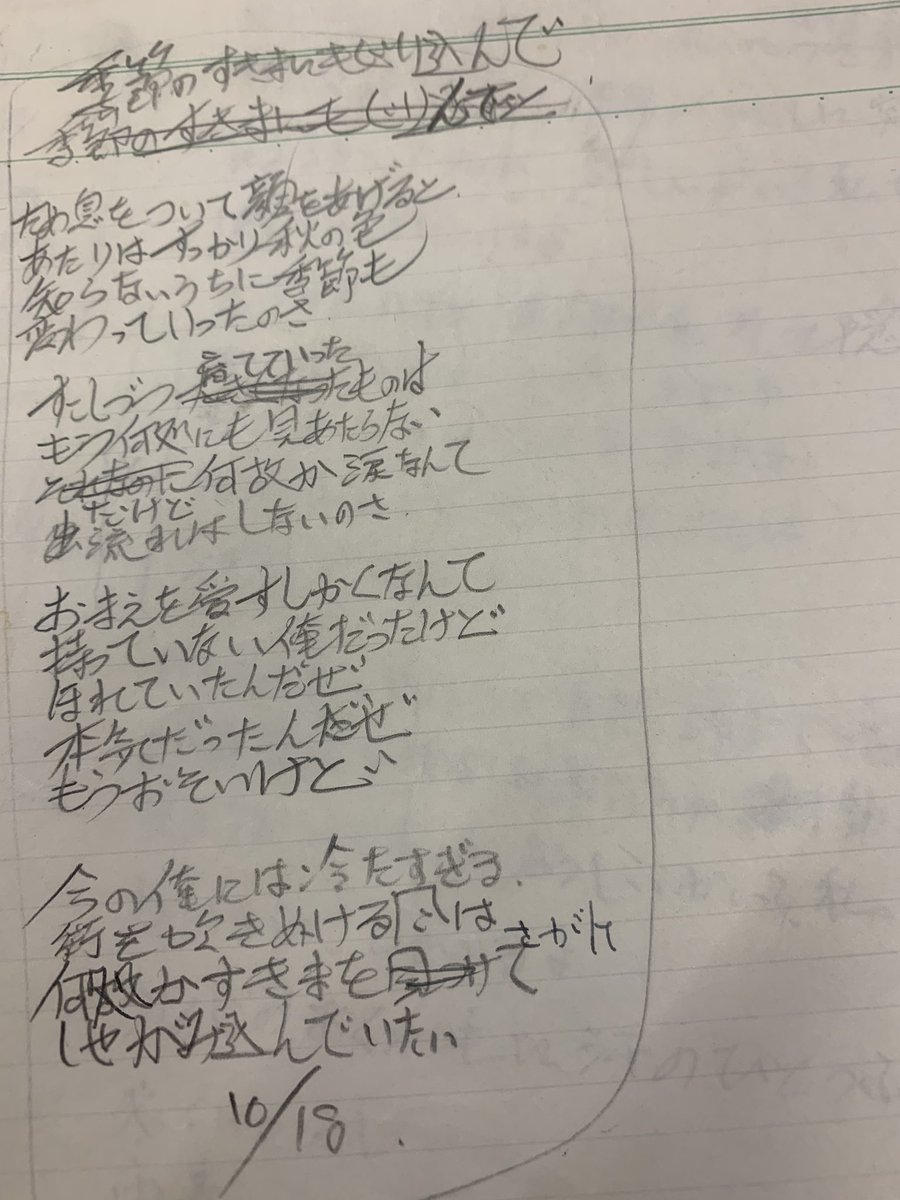 季節のすきまにもぐり込んで
季節のすきまにもぐり込んで
ため息をついて顔をあげると
あたりはすっかり秋の色
知らないうちに季節も
変わっていったのさ
捨てていった
すこしづつ ものは
もう何処にも見あたらない
それなのに何故か涙なんて
だけど
出流れはしないのさ
おまえを愛すしかくなんて
持っていない俺だったけど
ほれていたんだぜ
本気だったんだぜ
もうおそいけど
今の俺には冷たすぎる
街を吹きぬける風は
さがして
何故かすきまを見つけて
しゃがみ込んでいたい
10/18